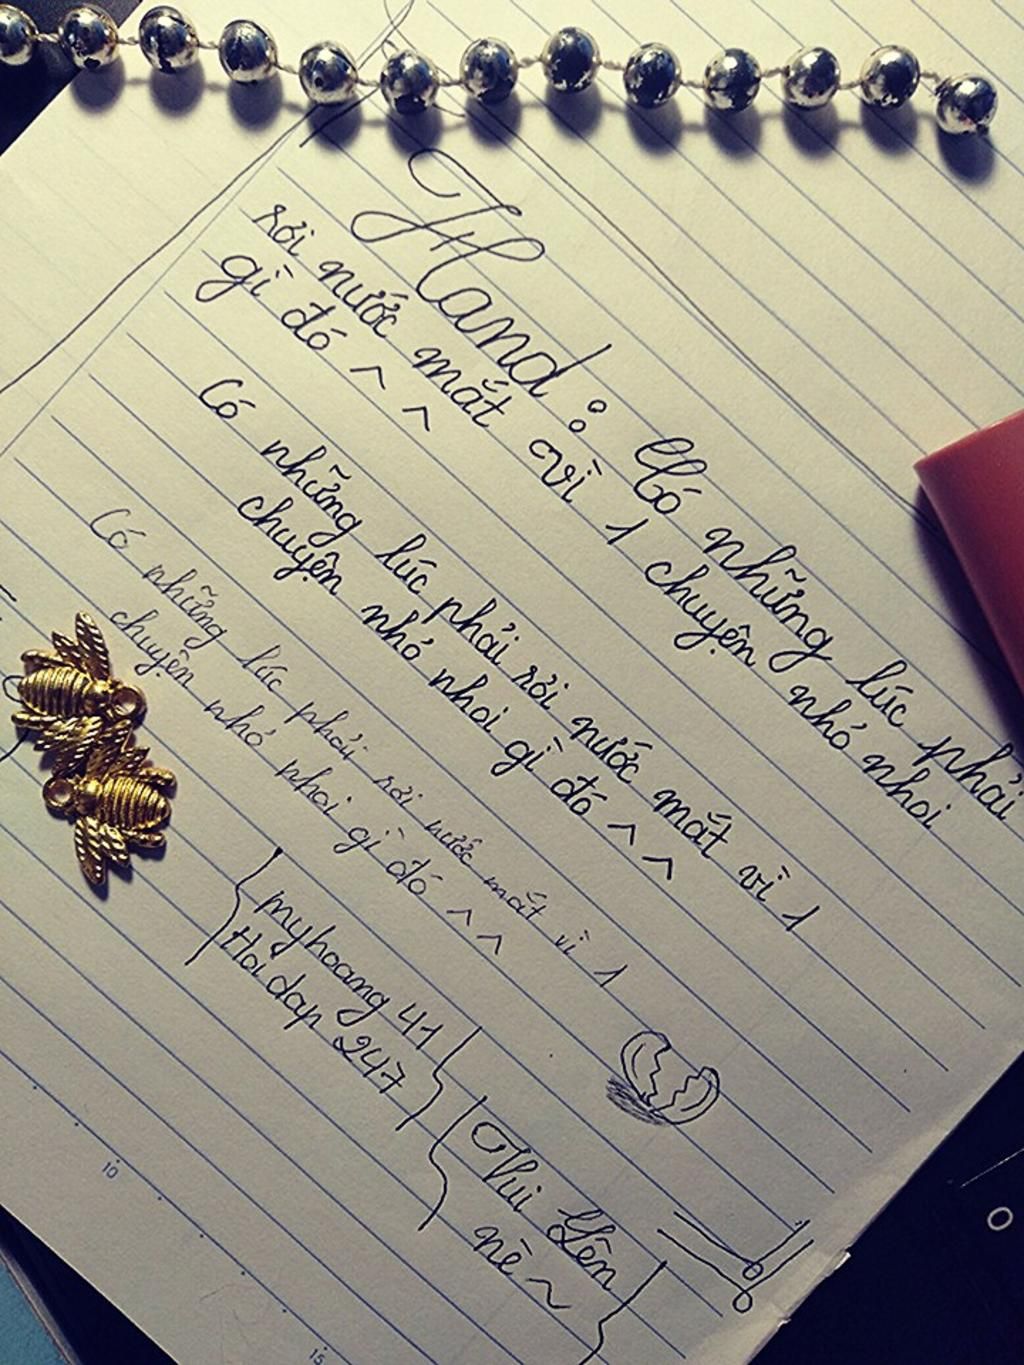 Hand : Có những lúc phải
rơi nước mắt vì 1 chuyện nhỏ nhoi
gì đó ^ ^
Có những lúc phải rơi nước mắt vì 1
chuyện nhỏ nhoi gì đó ^ ^
Có những lúc phải rơi nước mắt vì 1
chuyện nhỏ nhoi gì đó ^ ^
myhoang 41
Hoidap 247
Thui Yên
nè ~
10
15
0